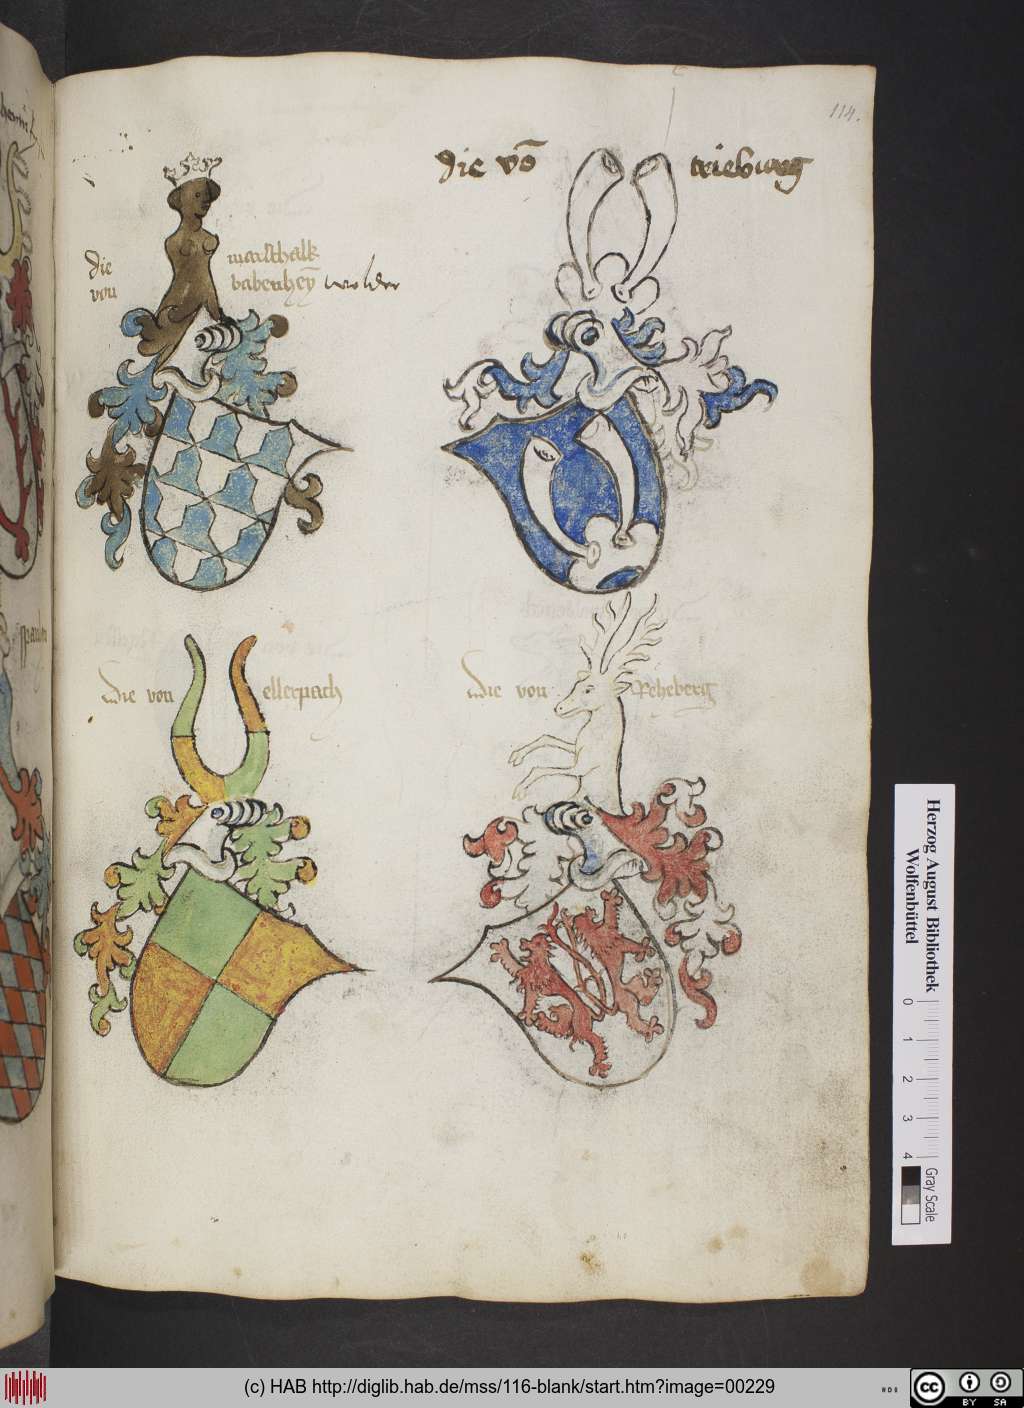 114.
die von
marschalk
babenheȳ wolder
die vō triburg
Die von ellerpach
Die von Recheberg
Herzog August Bibliothek
Wolfenbüttel
0 1 2 3 4
Gray Scale
(c) HAB http://diglib.hab.de/mss/116-blank/start.htm?image=00229
cc BY SA